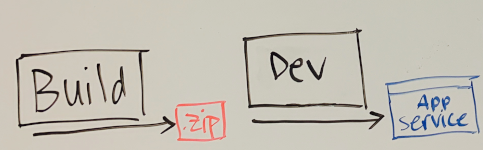 Build
.zip
Dev
App
Service